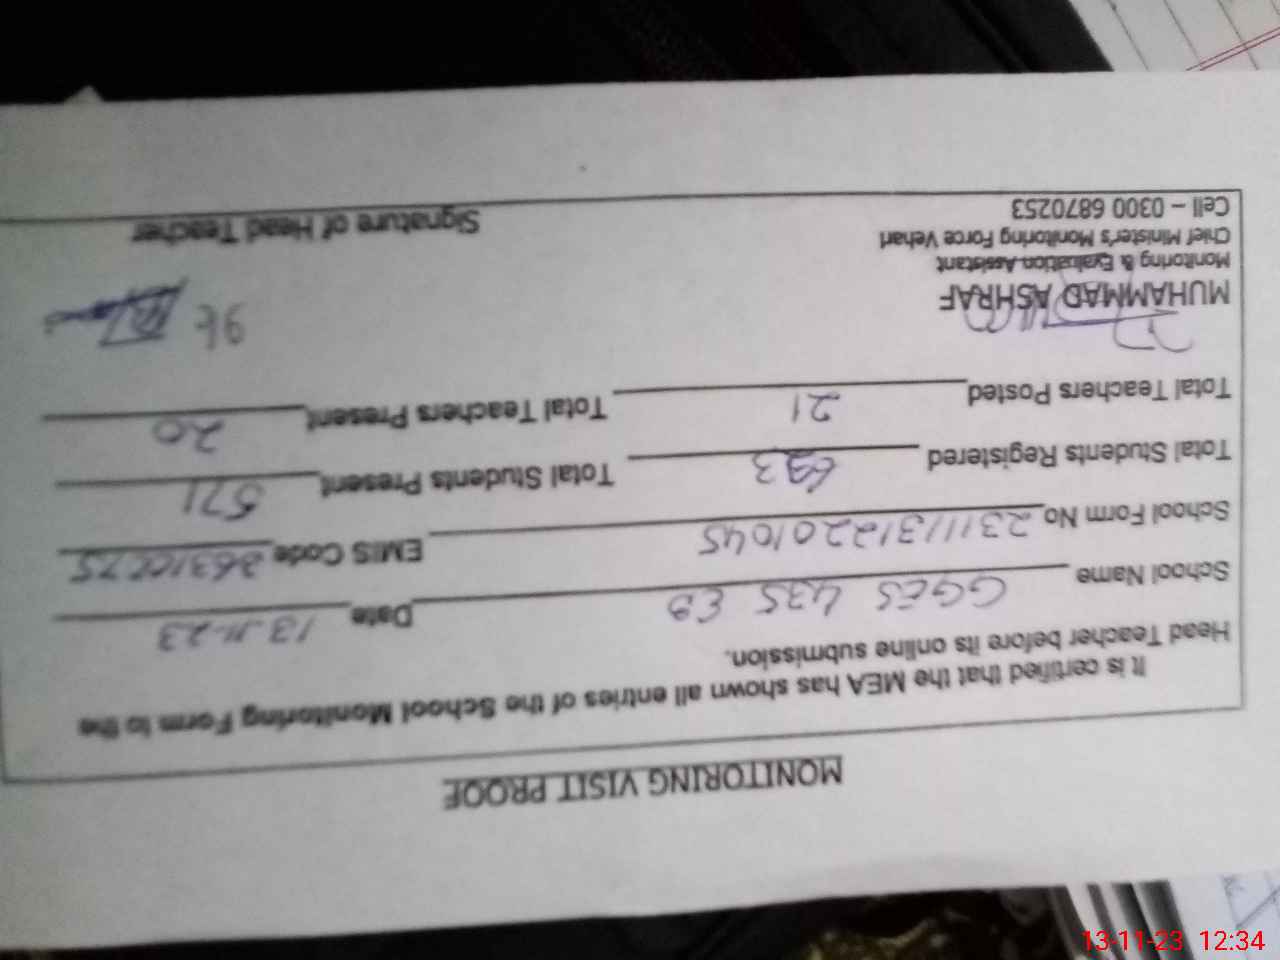 MONITORING VISIT PROOF
It is certified that the MEA has shown all entries of the School Monitoring Form to the
Head Teacher before its online submission.
School Name GGES 435 EB Date 13-11-23
School Form No 231111312201045 EMIS Code
Total Students Registered 693 Total Students Present 571
Total Teachers Posted 21 Total Teachers Present 20
96
MUHAMMAD ASHRAF
Monitoring & Evaluation Assistant
Chief Minister's Monitoring Force Vehari
Cell – 0300 6870253
Signature of Head Teacher
13-11-23 12:34